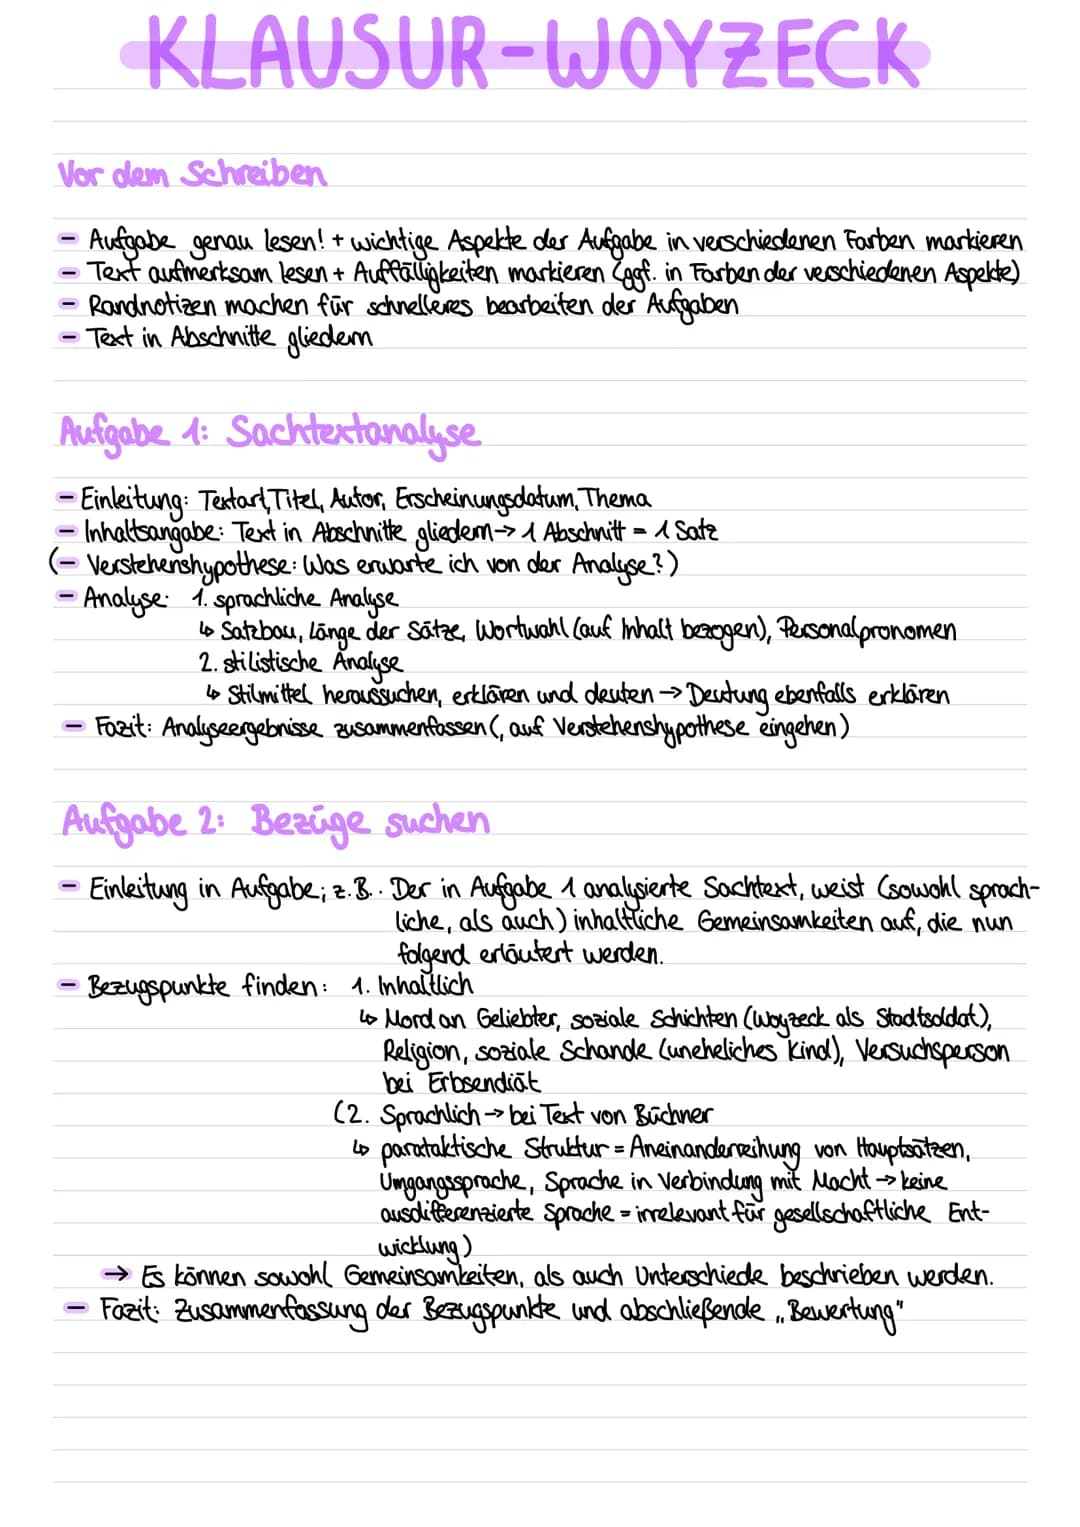 KLAUSUR-WOYZECK
Vor dem Schreiben
- Aufgabe genau lesen! + wichtige Aspekte der Aufgabe in verschiedenen Farben markieren
- Text aufmerksam lesen + Auffälligkeiten markieren (ggf. in Farben der verschiedenen Aspekte)
- Randnotizen machen für schnelleres bearbeiten der Aufgaben
- Text in Abschnitte gliedern
Aufgabe 1: Sachtextanalyse
- Einleitung: Textart, Titel, Autor, Erscheinungsdatum, Thema
- Inhaltsangabe: Text in Abschnitte gliedern → 1 Abschnitt = 1 Satz
(- Verstehenshypothese: Was erwarte ich von der Analyse?)
- Analyse: 1. sprachliche Analyse
↳ Satzbau, Länge der Sätze, Wortwahl (auf Inhalt bezogen), Personalpronomen
2. stilistische Analyse
↳ Stilmittel heraussuchen, erklären und deuten → Deutung ebenfalls erklären
- Fazit: Analyseergebnisse zusammenfassen (, auf Verstehenshypothese eingehen)
Aufgabe 2: Bezüge suchen
- Einleitung in Aufgabe; z.B.: Der in Aufgabe 1 analysierte Sachtext, weist (sowohl sprach-
liche, als auch) inhaltliche Gemeinsamkeiten auf, die nun
folgend erläutert werden.
- Bezugspunkte finden: 1. Inhaltlich
↳ Mord an Geliebter, soziale Schichten (Woyzeck als Stadtsoldat),
Religion, soziale Schande (uneheliches Kind), Versuchsperson
bei Erbsendiät
(2. Sprachlich → bei Text von Büchner
↳ parataktische Struktur = Aneinanderreihung von Hauptsätzen,
Umgangssprache, Sprache in Verbindung mit Macht → keine
ausdifferenzierte Sprache = irrelevant für gesellschaftliche Ent-
wicklung)
→ Es können sowohl Gemeinsamkeiten, als auch Unterschiede beschrieben werden.
- Fazit: Zusammenfassung der Bezugspunkte und abschließende „Bewertung"